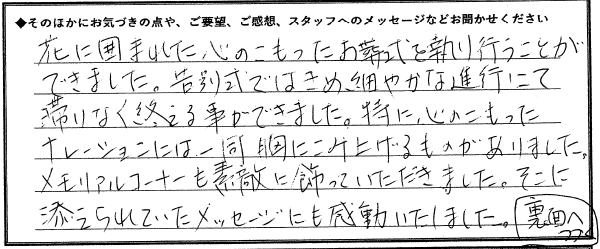 ◆そのほかにお気づきの点や、ご要望、ご感想、スタッフへのメッセージなどお聞かせください
花に囲まれた心のこもったお葬式を執り行うことが
できました。告別式ではきめ細やかな進行にて
滞りなく終える事ができました。特に、心のこもった
ナレーションには一同胸にこみ上げるものがありました。
メモリアルコーナーも素敵に飾っていただきました。そこに
添えられていたメッセージにも感動いたしました。
裏面へ